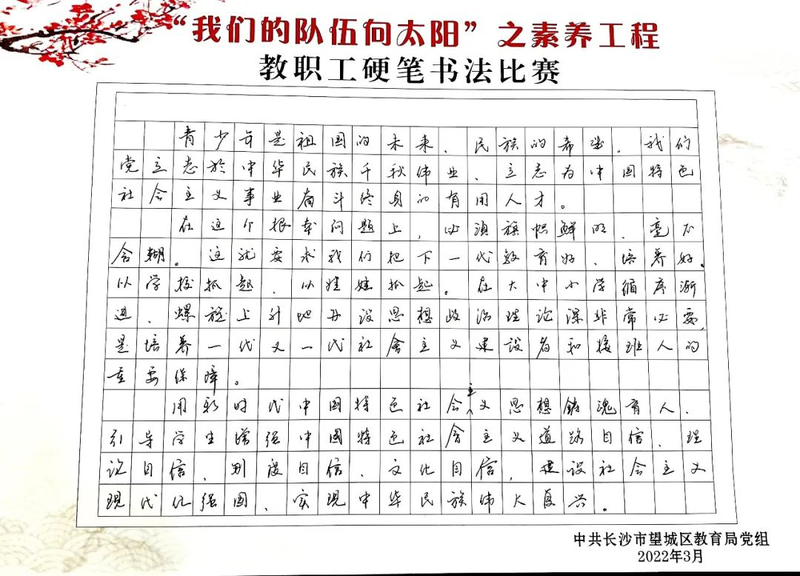 “我们的队伍向太阳”之素养工程
教职工硬笔书法比赛
青少年是祖国的未来、民族的希望。我们
党立志於中华民族千秋伟业、立志为中国特色
社会主义事业奋斗终身的有用人才。
在这个根本问题上，必须旗帜鲜明、毫不
含糊。这就要求我们把下一代教育好、培养好。
从学校抓起、从娃娃抓起。在大中小学循序渐
进、螺旋上升地开设思想政治理论课非常必要，
是培养一代又一代社会主义建设者和接班人的
重要保障。
用新时代中国特色社会主义思想铸魂育人，
引导学生增强中国特色社会主义道路自信、理
论自信、制度自信、文化自信，建设社会主义
现代化强国、实现中华民族伟大复兴。
中共长沙市望城区教育局党组
2022年3月